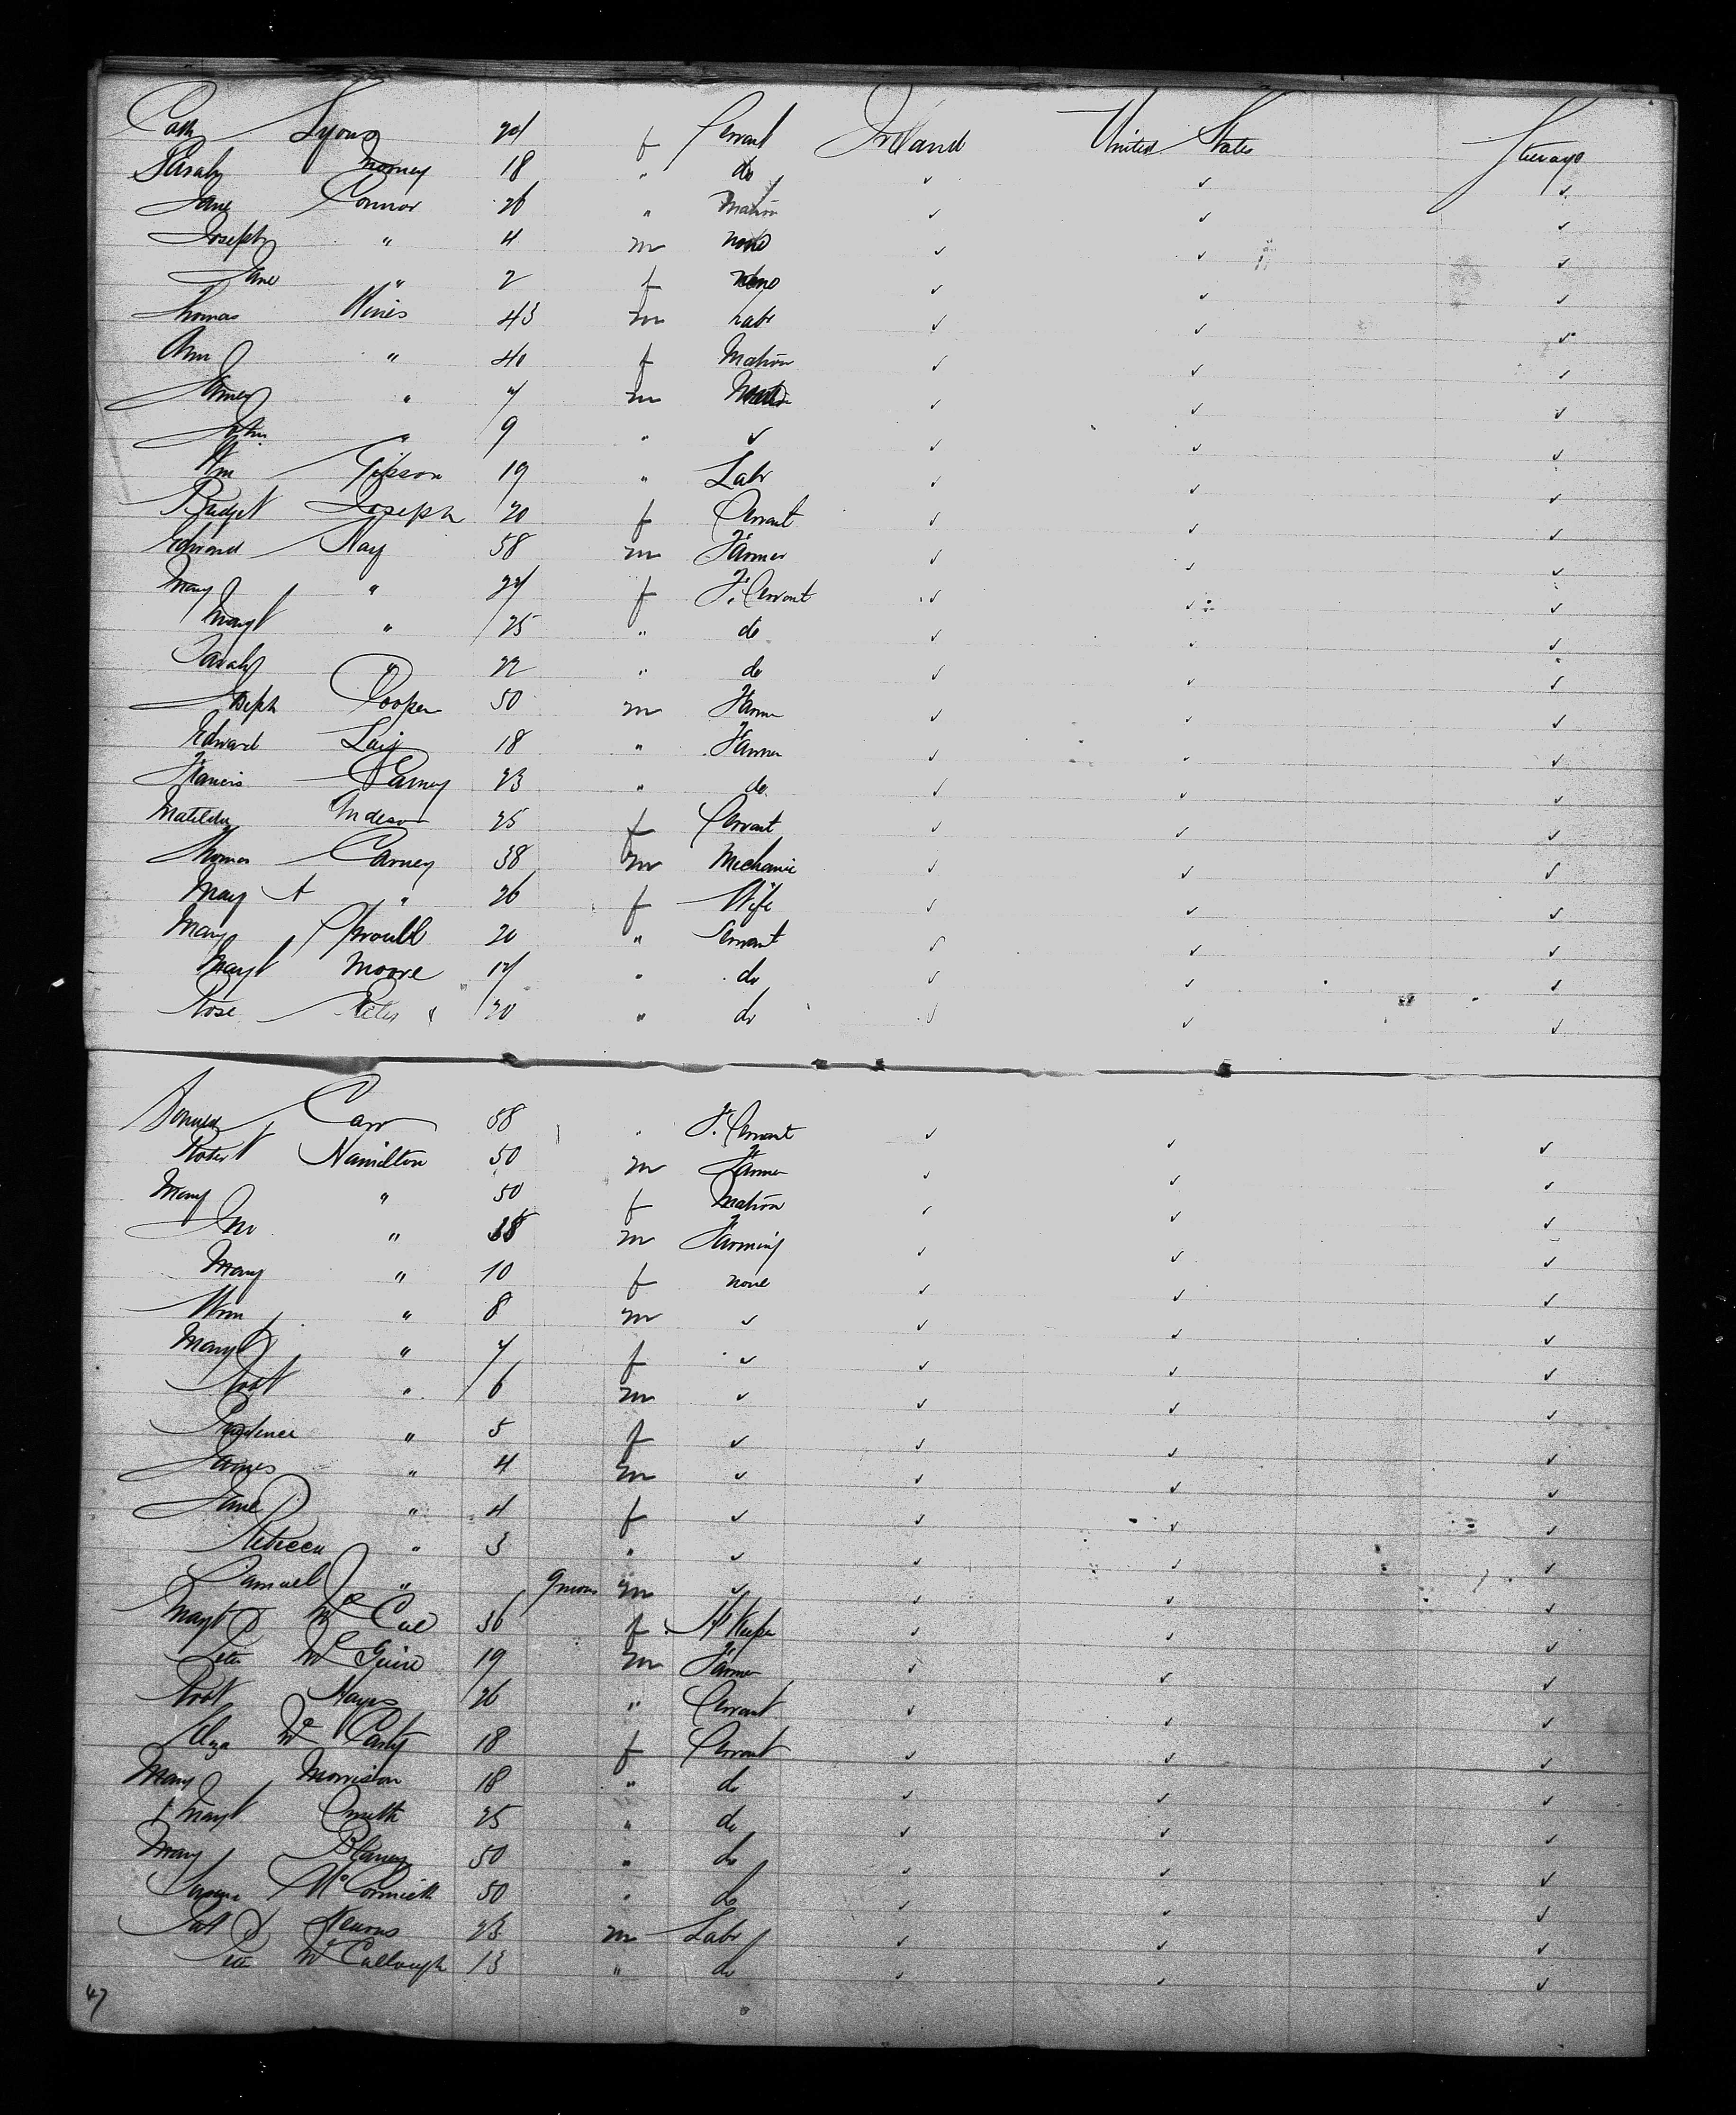 Cath Lyons 24 f Servant Ireland United States Steerage
Sarah Mooney 18 " do ✓ ✓ ✓
Jane Connor 26 " Matron ✓ ✓ ✓
Joseph " 4 m none ✓ ✓ ✓
Jane " 2 f none ✓ ✓ ✓
Thomas Hines 43 m Labr ✓ ✓ ✓
Ann " 40 f Matron ✓ ✓ ✓
James " m ✓ ✓ ✓
John " 9 " ✓ ✓ ✓ ✓
Wm Gibson 19 " Labr ✓ ✓ ✓
Bridget Joseph 20 f Servant ✓ ✓ ✓
Edward Hay 58 m Farmer ✓ ✓ ✓
Mary " 24 f F. Servant ✓ ✓ ✓
Margt " 25 " do ✓ ✓ ✓
Sarah " 22 " do ✓ ✓ ✓
Joseph Cooper 50 m Farmer ✓ ✓ ✓
Edward 18 " Farmer ✓ ✓ ✓
Francis 23 " do ✓ ✓ ✓
Matilda 25 f Servant ✓ ✓ ✓
Thomas Carney 38 m Mechanic ✓ ✓ ✓
Mary A " 26 f Wife ✓ ✓ ✓
Mary Sproull 20 " Servant ✓ ✓ ✓
Margt Moore 17 " do ✓ ✓ ✓
Rose 20 " do ✓ ✓ ✓
Carr 58 " F. Servant ✓ ✓ ✓
Robert Hamilton 50 m Farmer ✓ ✓ ✓
Mary " 50 f Matron ✓ ✓ ✓
Jno " m Farming ✓ ✓ ✓
Mary " 10 f none ✓ ✓ ✓
Wm " 8 m ✓ ✓ ✓ ✓
Margt " 7 f ✓ ✓ ✓ ✓
Robt " 6 m ✓ ✓ ✓ ✓
Prudence " 5 f ✓ ✓ ✓ ✓
James " 4 m ✓ ✓ ✓ ✓
Jane " 4 f ✓ ✓ ✓ ✓
Rebecca " 3 " ✓ ✓ ✓ ✓
Samuel " 9 mos m ✓ ✓ ✓ ✓
Margt McCue 36 f H Keeper ✓ ✓ ✓
Peter McGuire 19 m Farmer ✓ ✓ ✓
Robt Hayes 26 " Servant ✓ ✓ ✓
Eliza McCarty 18 f Servant ✓ ✓ ✓
Mary Morrison 18 " do ✓ ✓ ✓
Margt Smith 25 " do ✓ ✓ ✓
Mary Blaney 50 " do ✓ ✓ ✓
McCormick 50 " do ✓ ✓ ✓
Pat Kearns 23 m Labr ✓ ✓ ✓
McCullough 13 " do ✓ ✓ ✓
47